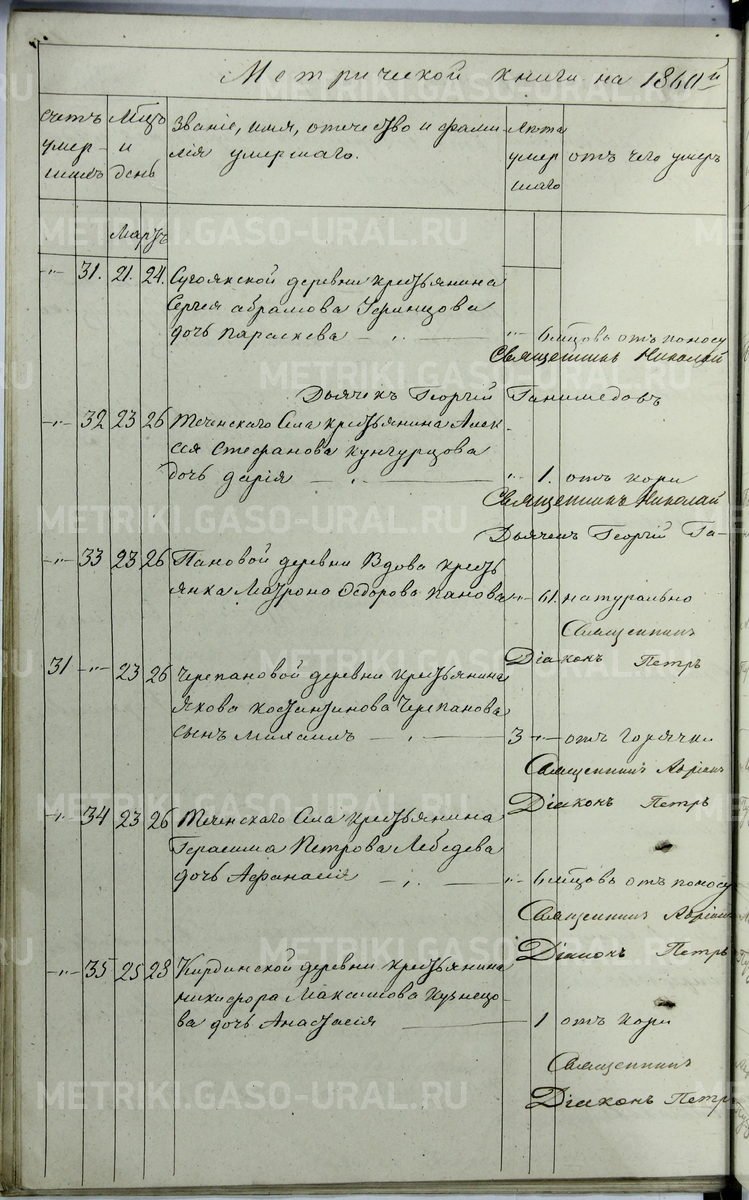 Метрической книги на 1860й
счетъ умер-шихъ
Мцъ и день
Званіе, имя, отечество и фами-
лія умершаго.
Лѣта умер шаго
отъ чего умеръ
Мартъ
-"- 31. 21. 24. Сугоякской деревни крестьянина
Сергея Абрамова
дочь Параскева - " - 6 мцовъ отъ поносу
Священникъ Николай
Дьячекъ Георгій Ганимедовъ
-"- 32 23 26 Теченскаго Села крестьянина Алек-
сѣя Стефанова Кунгурцова
дочь Дарія - " - 1. отъ кори
Священникъ Николай
Дьячекъ Георгій Га-
-"- 33 23 26 Пановой деревни Вдова кресть
янка Матрона Ѳедорова Панова -"- 61. натурально
Священникъ
Діаконъ Петръ
31 -"- 23 26 Черепановой деревни крестьянина
Якова Костантинова Черепанова
сынъ Михаилъ - " - 3 -"- отъ горячки
Священникъ Адріанъ
Діаконъ Петръ
-"- 34 23 26 Теченскаго Села крестьянина
Герасима Петрова Лебедева
дочь Афанасія - " - 6 мцовъ отъ поносу
Священникъ Адріанъ
Діаконъ Петръ
-"- 35 25 28 Кирдинской деревни крестьянина
Никифора Максимова Кузнецо-
ва дочь Анастасія - 1 отъ кори
Священникъ
Діаконъ Петръ
METRIKI.GASO-URAL.RU